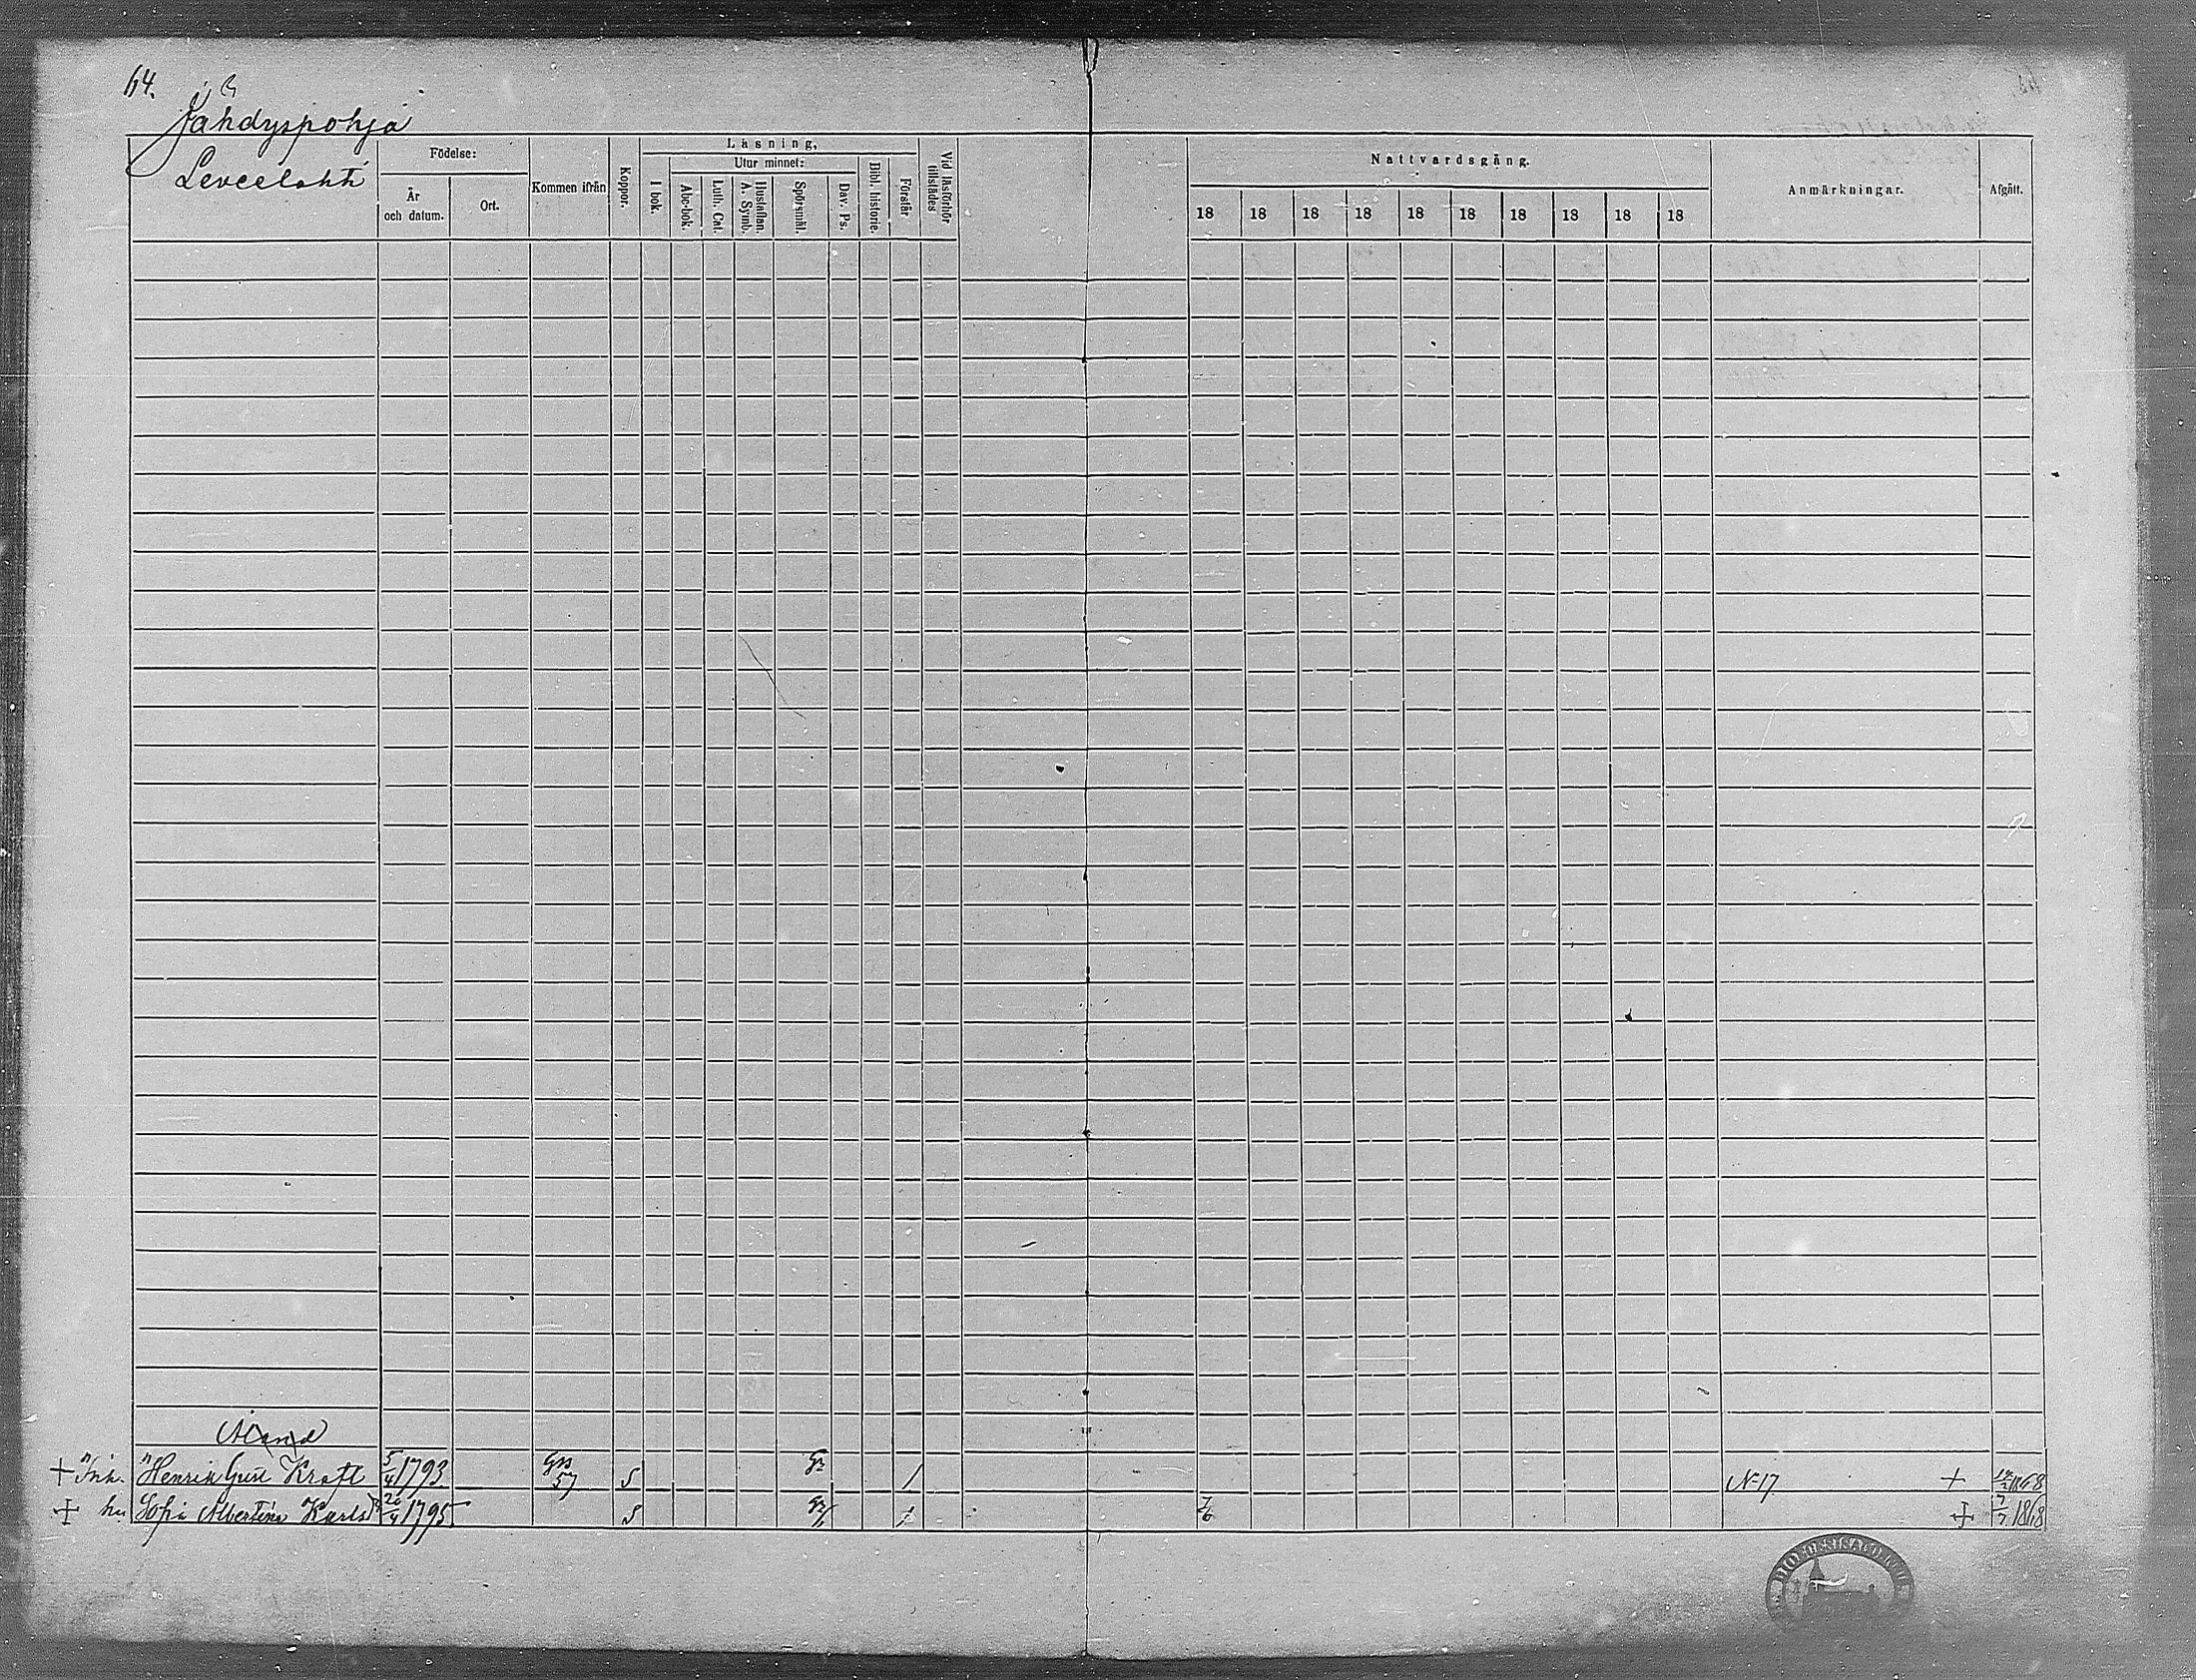 64.
Jahdyspohja
Leveelahti
Födelse:
År
och datum.
Ort.
Kommen ifrån
Koppor.
Läsning,
Utur minnet:
I bok.
Abc-bok.
Luth. Cat.
Hustaflan.
A. Symb.
Spörsmål.
Dav. Ps.
Bibl. historie.
Förstår
Vid läsförhör
tillstädes
Nattvardsgång.
18 18 18 18 18 18 18 18 18 18
Anmärkningar.
Afgått.
+ Inh. Henrik Gust Kraft 5/4 1793 57 S / N:17 +
+ hu Sofia Albertina Karlsd 20/4 1795 S 7/6 + 7/7 1868